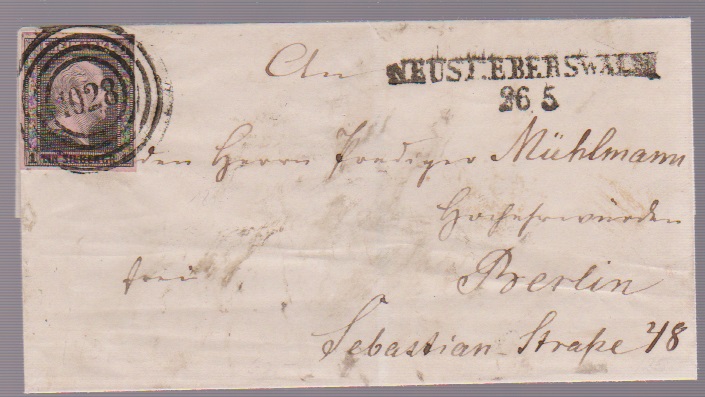 1028
NEUST.EBERSWALDE
26 5
An
den Herrn Prediger Mühlmann
Hochehrwürden
frei
Berlin
Sebastian-Straße 48